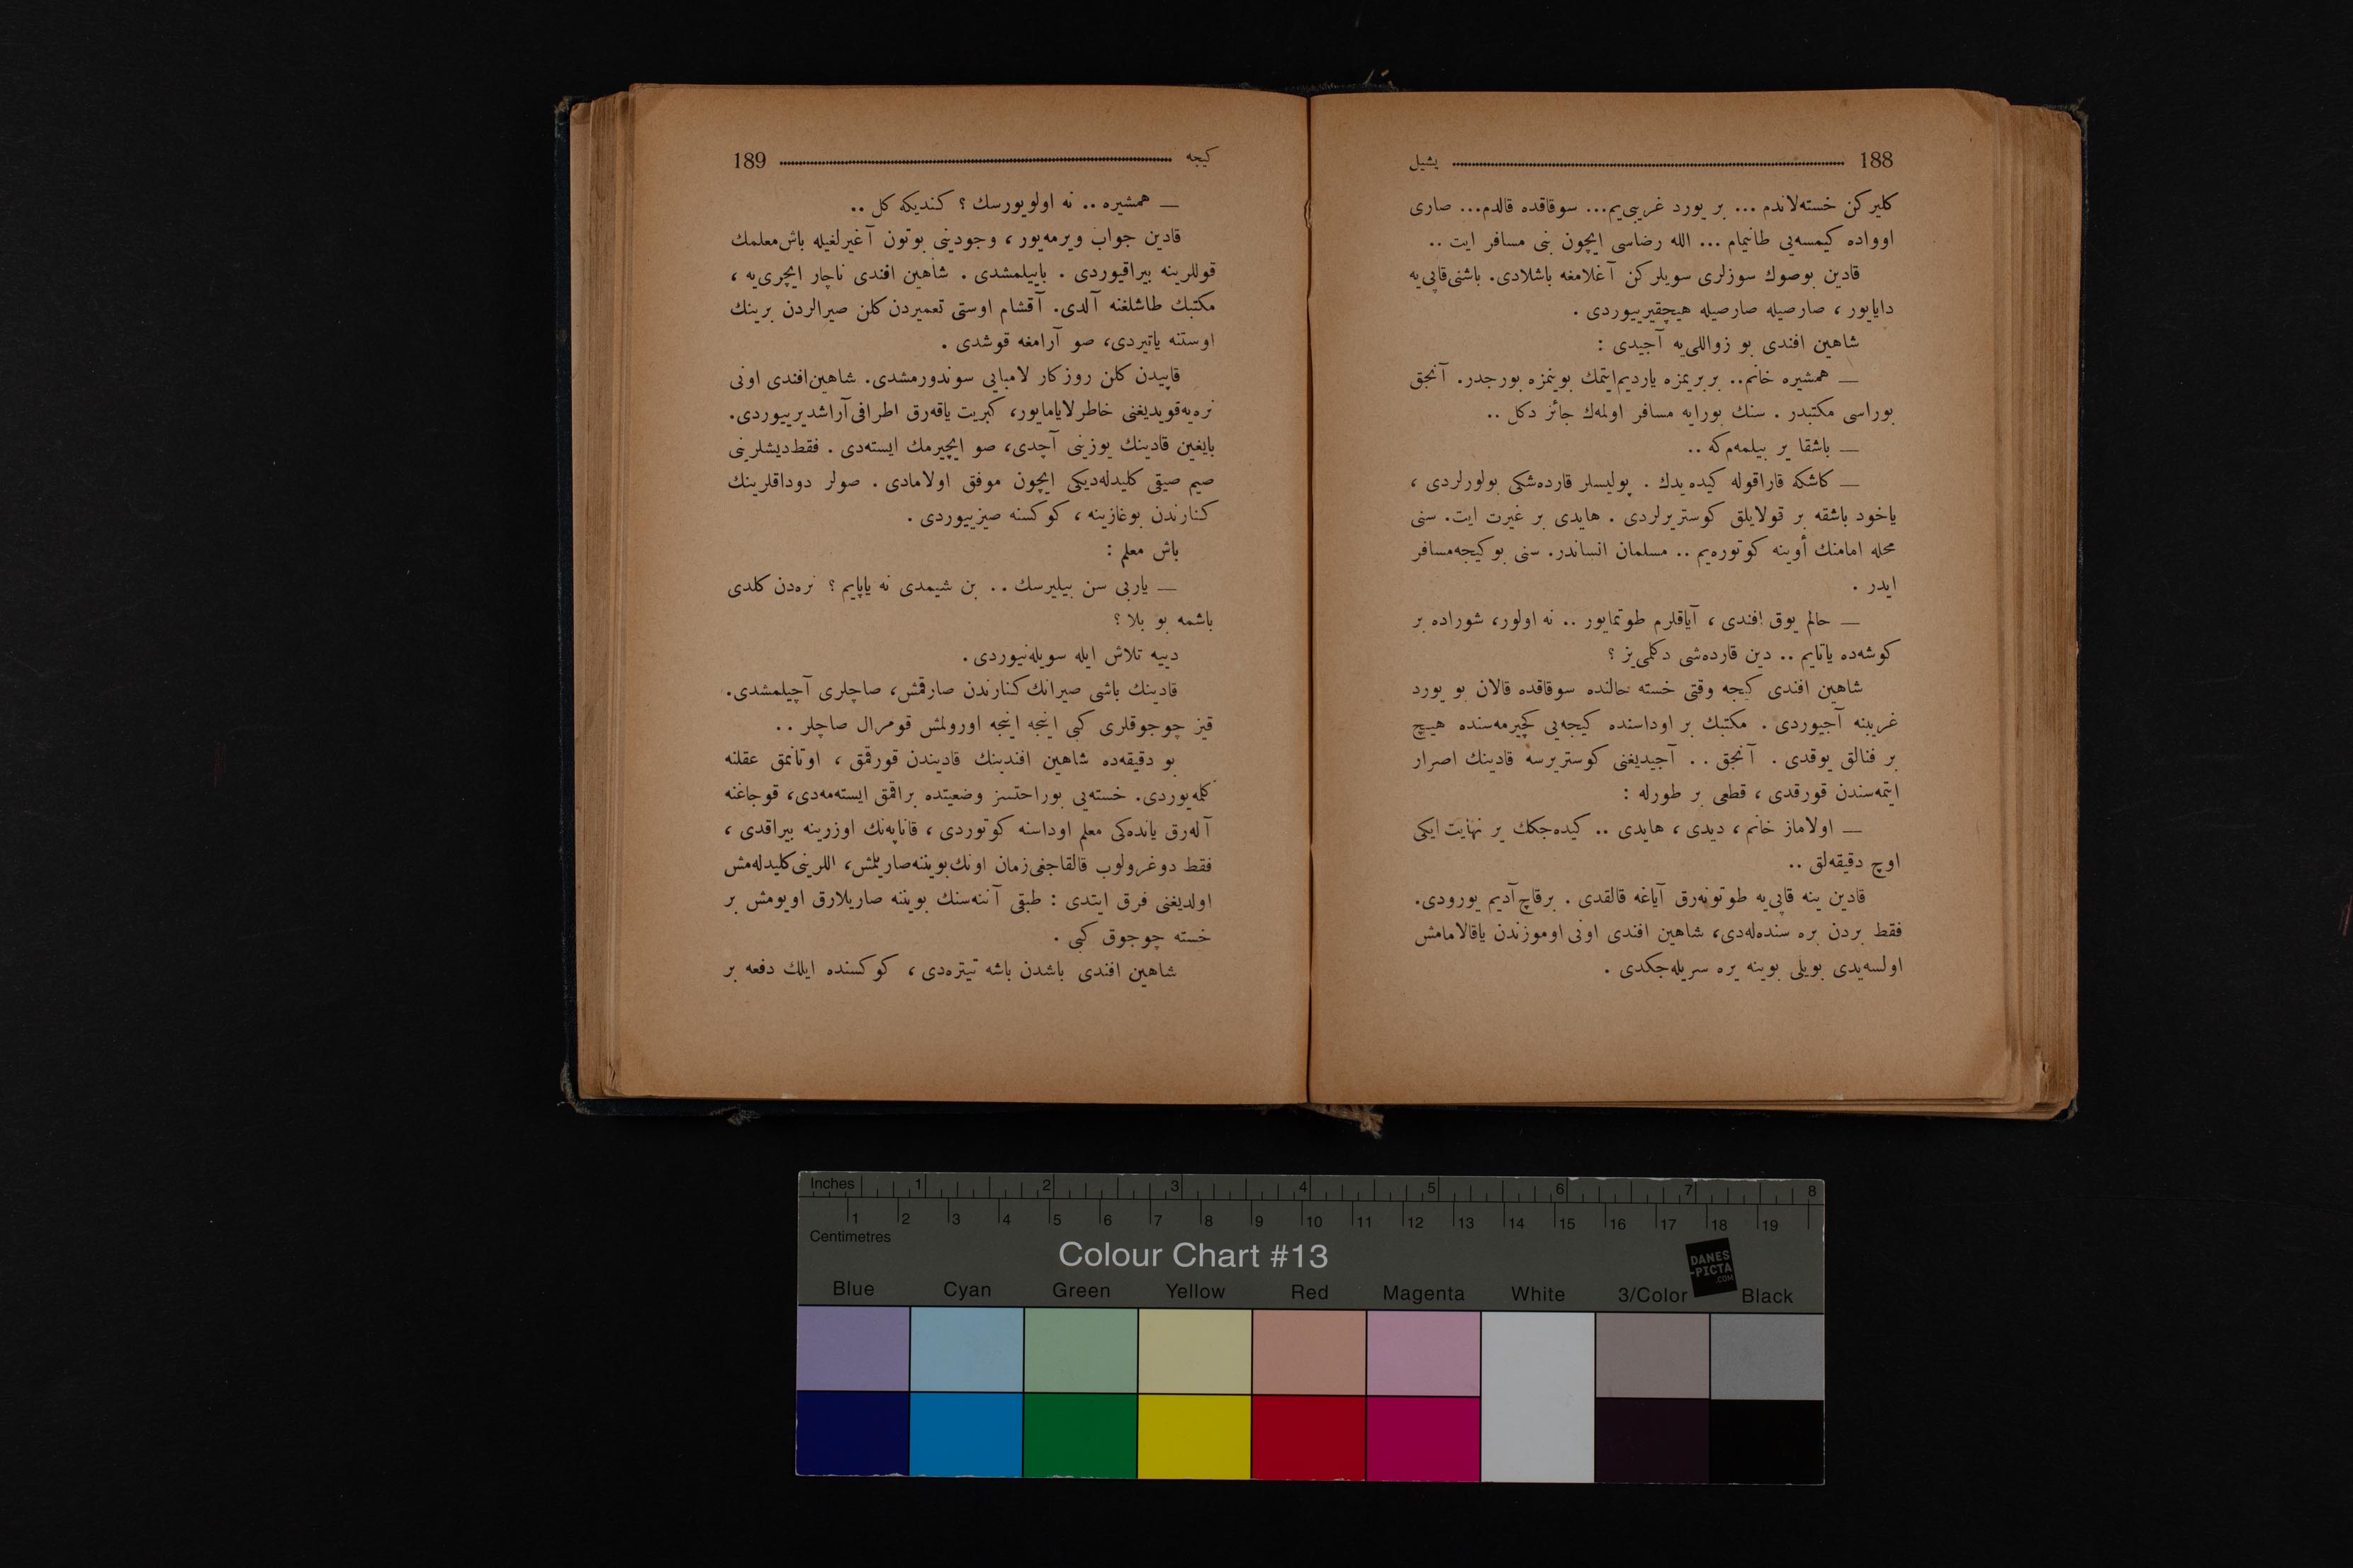 188 يشيل
كليركن خسته‌لاندم ... بر يورد غريبى‌يم... سوقاقده قالدم... صارى
اوواده كيمسه‌يى طانيمام ... الله رضاسى ايچون بنى مسافر ايت ..
قادين بوصوك سوزلرى سويلركن آغلامغه باشلادى. باشنى قاپى‌يه
داياپور ، صارصيله صارصيله هيچقيرييوردى .
شاهين افندى بو زواللى‌يه آجيدى :
— همشيره خانم.. بربريمزه يارديم ايتمك بوينمزه بورجدر. آنجق
بوراسى مكتبدر . سنك بورايه مسافر اولمه‌ك جائز دكل ..
— باشقا ير بيلمه‌م كه ..
— كاشكه قاراقوله كيده‌يدك . پوليسلر قارده‌شكى بولورلردى ،
ياخود باشقه بر قولايلق كوستريرلردى . هايدى بر غيرت ايت. سنى
محله امامنك أوينه كوتوره‌يم .. مسلمان انساندر. سنى بو كيجه مسافر
ايدر .
— حالم يوق افندى ، آياقلرم طوتمايور .. نه اولور، شوراده بر
كوشه‌ده ياتايم .. دين قارده‌شى دكلمى‌يز ؟
شاهين افندى كيجه وقتى خسته حالنده سوقاقده قالان بو يورد
غريبنه آجيوردى . مكتبك بر اوداسنده كيجه‌يى كچيرمه‌سنده هيچ
بر فنالق يوقدى . آنجق .. آجيديغنى كوستريرسه قادينك اصرار
ايتمه‌سندن قورقدى ، قطعى بر طورله :
— اولاماز خانم ، ديدى ، هايدى .. كيده‌جكك ير نهايت ايكى
اوچ دقيقه‌لق ..
قادين ينه قاپى‌يه طوتونه‌رق آياغه قالقدى . برقاچ آديم يورودى.
فقط بردن بره سنده‌له‌دى، شاهين افندى اونى اوموزندن ياقالامامش
اولسه‌يدى بويلى بوينه يره سريله‌جكدى .
كيجه 189
— همشيره .. نه اولويورسك ؟ كنديكه كل ..
قادين جواب ويرمه‌يور ، وجودينى بوتون آغيرلغيله باش معلمك
قوللرينه بيراقيوردى . باييلمشدى . شاهين افندى ناچار ايچرى‌يه ،
مكتبك طاشلغنه آلدى. آقشام اوستى تعميردن كلن صيرالردن برينك
اوستنه ياتيردى، صو آرامغه قوشدى .
قاپيدن كلن روزكار لامبايى سوندورمشدى. شاهين افندى اونى
نره‌يه قويديغنى خاطرلايامايور، كبريت ياقه‌رق اطرافى آراشديرييوردى.
بايغين قادينك يوزينى آچدى، صو ايچيرمك ايسته‌دى . فقط ديشلرينى
صيم صيقى كليدله‌ديكى ايچون موفق اولامادى . صولر دوداقلرينك
كنارندن بوغازينه ، كوكسنه صيزييوردى .
باش معلم :
— ياربى سن بيليرسك .. بن شيمدى نه ياپايم ؟ نره‌دن كلدى
باشمه بو بلا ؟
دييه تلاش ايله سويله‌نيوردى .
قادينك باشى صيرانك كنارندن صارقمش، صاچلرى آچيلمشدى.
قيز چوجوقلرى كبى اينجه اينجه اورولمش قومرال صاچلر ..
بو دقيقه‌ده شاهين افندينك قاديندن قورقمق ، اوتانمق عقلنه
كلمه‌يوردى. خسته‌يى بوراحتسز وضعيتده براقمق ايسته‌مه‌دى، قوجاغنه
آله‌رق يانده‌كى معلم اوداسنه كوتوردى ، قاناپه‌نك اوزرينه بيراقدى ،
فقط دوغرولوب قالقاجغى زمان اونك بويننه صاريلمش، اللرينى كليدله‌مش
اولديغنى فرق ايتدى : طبقى آننه‌سنك بويننه صاريلارق اويومش بر
خسته چوجوق كبى .
شاهين افندى باشدن باشه تيتره‌دى ، كوكسنده ايلك دفعه بر
Inches 1 2 3 4 5 6 7 8
1 2 3 4 5 6 7 8 9 10 11 12 13 14 15 16 17 18 19
Centimetres
Colour Chart #13
DANES
-PICTA
.COM
Blue Cyan Green Yellow Red Magenta White 3/Color Black